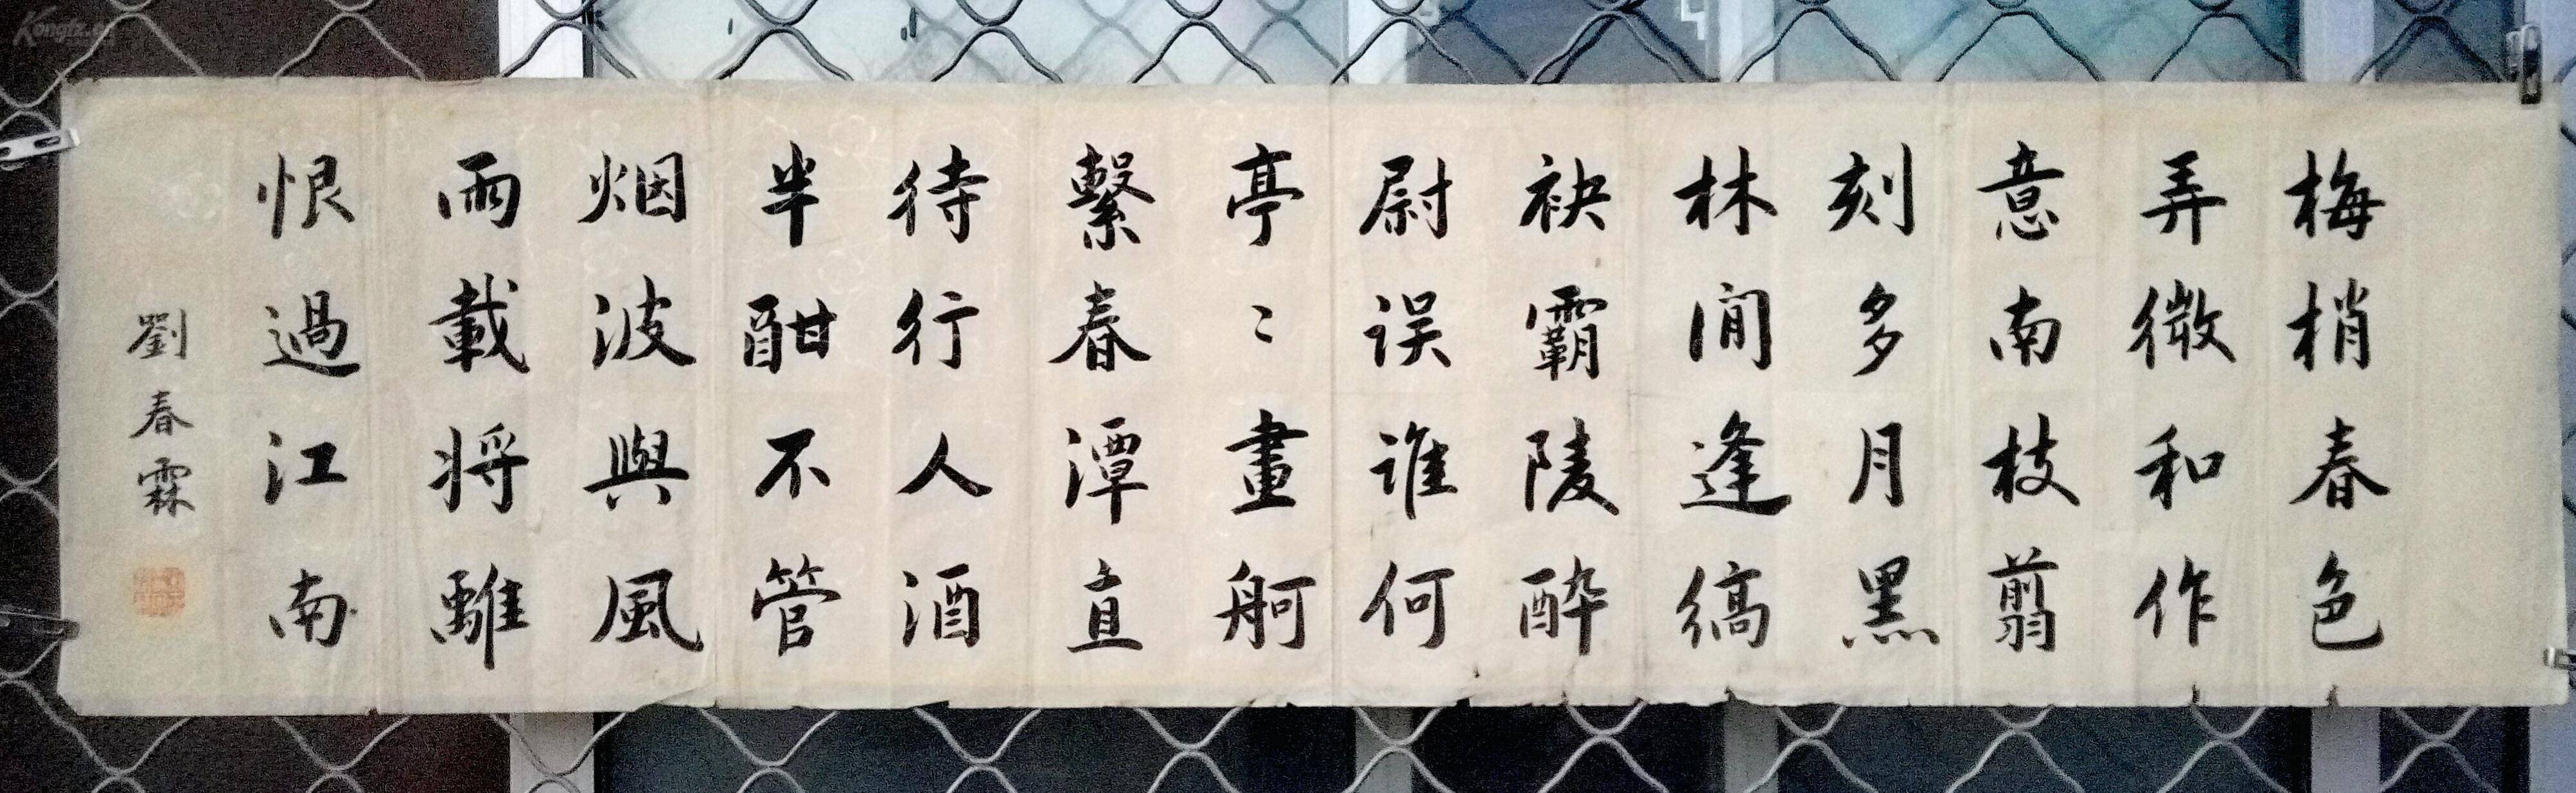 梅梢春色
弄微和作
意南枝翦
刻多月黑
林間逢縞
袂霸陵醉
尉误谁何
亭〻畫舸
繫春潭直
待行人酒
半酣不管
烟波與風
雨載将離
恨過江南
劉春霖
Kongfz.cn